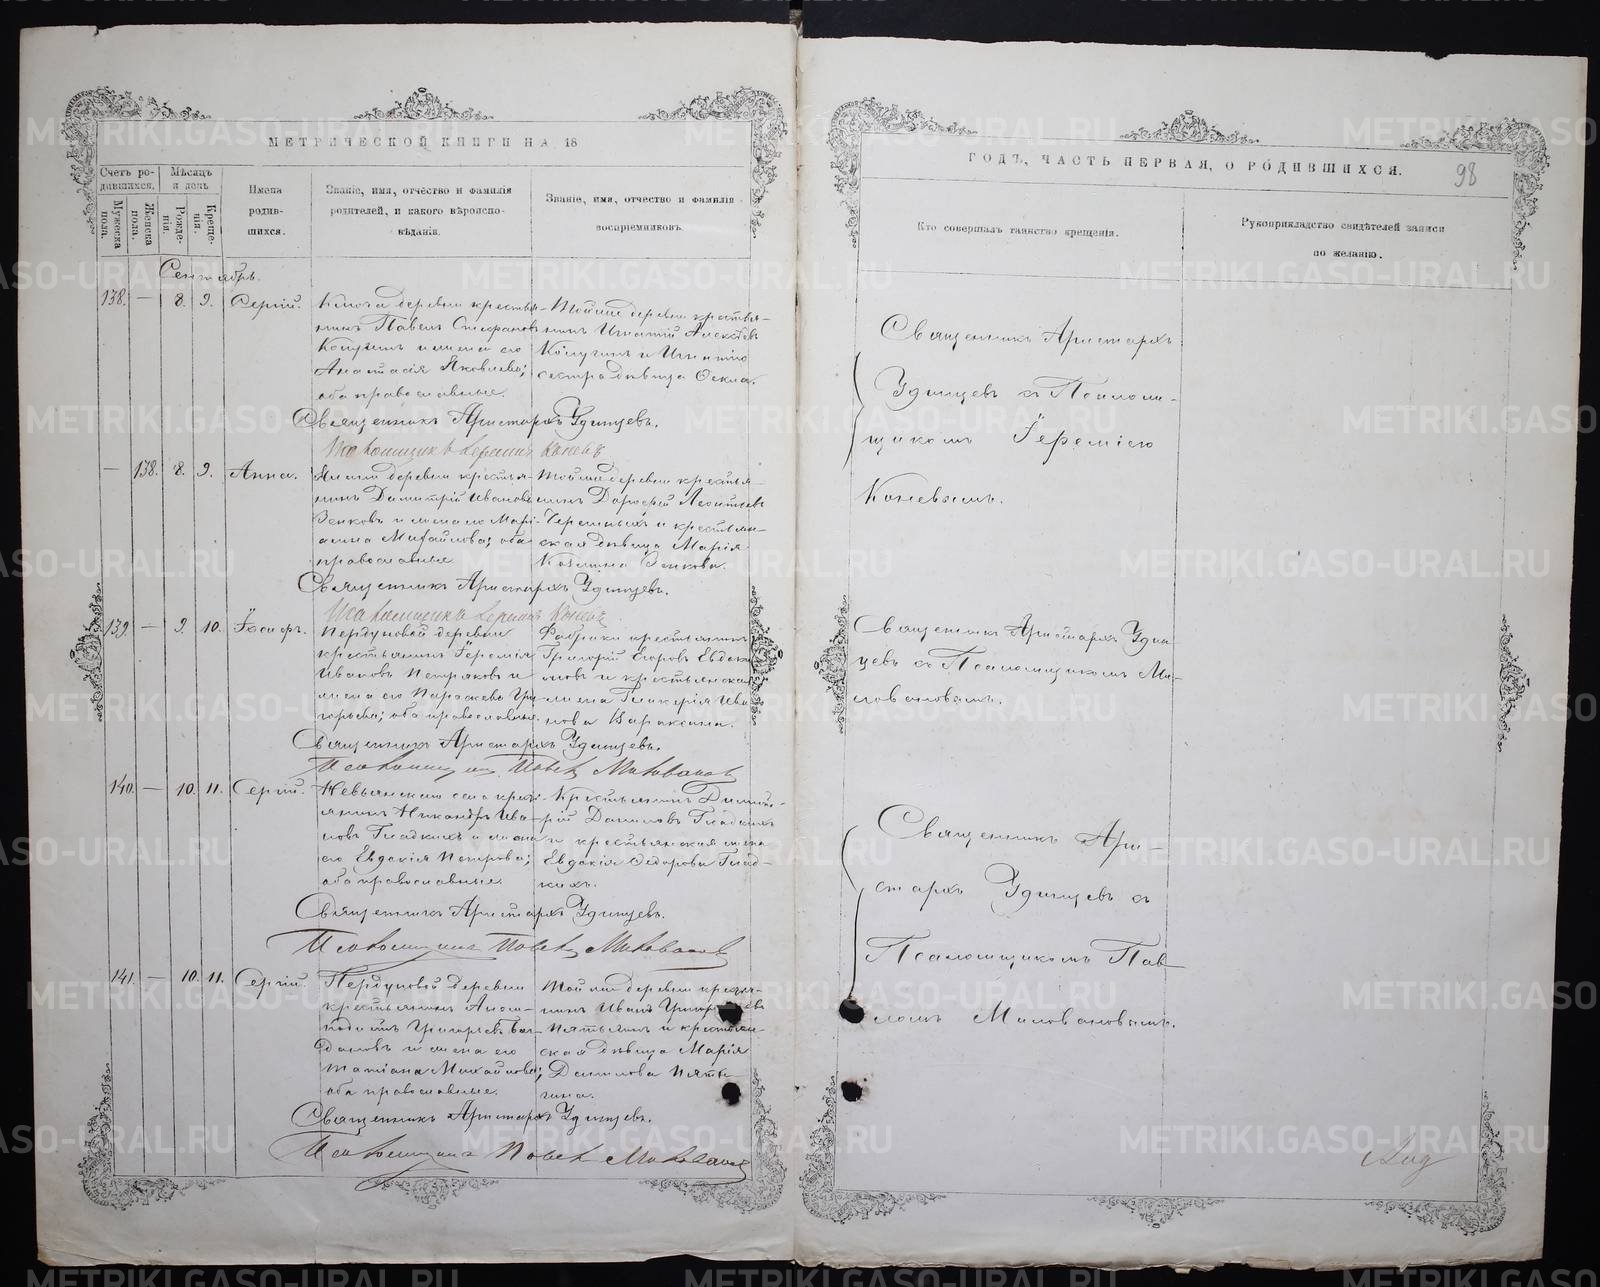 МЕТРИЧЕСКОЙ КНИГИ НА 18
Счетъ ро-
дившихся.
Мѣсяцъ
и день
Мужеска
пола.
Женска
пола.
Рожде-
нія.
Креще-
нія.
Имена
родив-
шихся.
Званіе, имя, отчество и фамилія
родителей, и какого вѣроиспо-
вѣданія.
Званіе, имя, отчество и фамилія
воспріемниковъ.
Сентябрь.
138. — 8. 9. Сергій.
деревни крестья-
нинъ Павелъ Стефановъ
и жена его
Анастасія Яковлева;
оба православные.
Той же деревни крестья-
нинъ Игнатій Алексѣев
и Игнатія
сестра дѣвица Фекла.
Священникъ Аристархъ Удинцевъ.
Псаломщикъ Іеремія Коневъ
— 138. 8. 9. Анна.
деревни крестья-
нинъ Димитрій Ивановъ
Зенковъ и жена его Марі-
анна Михайлова; оба
православные
Той же деревни крестья-
нинъ Дорофей Леонтьевъ
Черемныхъ и крестьян-
ская дѣвица Марія
Козмина Зенкова.
Священникъ Аристархъ Удинцевъ.
Псаломщикъ Іеремія Коневъ
139. — 9. 10. Іосифъ.
Пердуновой деревни
крестьянинъ Іеремія
Ивановъ Петряковъ и
жена его Параскева Гри-
горьева; оба православные.
Фабрики крестьянинъ
Григорій Егоровъ Евдоки-
мовъ и крестьянская
жена Гликерія Ива-
нова Вараксина.
Священникъ Аристархъ Удинцевъ.
Псаломщикъ Павелъ Миловановъ
140. — 10. 11. Сергій.
Невьянскаго села крест-
янинъ Никандръ Ива-
новъ Гладкихъ и жена
его Евдокія Петрова;
оба православные.
Крестьянинъ Димит-
рій Даниловъ Гладкихъ
и крестьянская жена
Евдокія Ѳедорова Глад-
кихъ.
Священникъ Аристархъ Удинцевъ.
Псаломщикъ Павелъ Миловановъ
141. — 10. 11. Сергій.
Пердуновой деревни
крестьянинъ Анем-
подистъ Григорьевъ Бог-
дановъ и жена его
Татіана Михайлова;
оба православные.
Той же деревни крестья-
нинъ Иванъ Григорьевъ
Пятыгинъ и крестьян-
ская дѣвица Марія
Данилова Пяты-
гина.
Священникъ Аристархъ Удинцевъ.
Псаломщикъ Павелъ Миловановъ
ГОДЪ, ЧАСТЬ ПЕРВАЯ, О РОДИВШИХСЯ.
98
Кто совершалъ таинство крещенія.
Рукоприкладство свидѣтелей записи
по желанію.
Священникъ Аристархъ
Удинцевъ съ Псаломщ-
щикомъ Іереміею
Коневымъ.
Священникъ Аристархъ Удин-
цевъ съ Псаломщикомъ Ми-
ловановымъ.
Священникъ Ари-
стархъ Удинцевъ съ
Псаломщикомъ Пав-
ломъ Миловановымъ.
METRIKI.GASO-URAL.RU